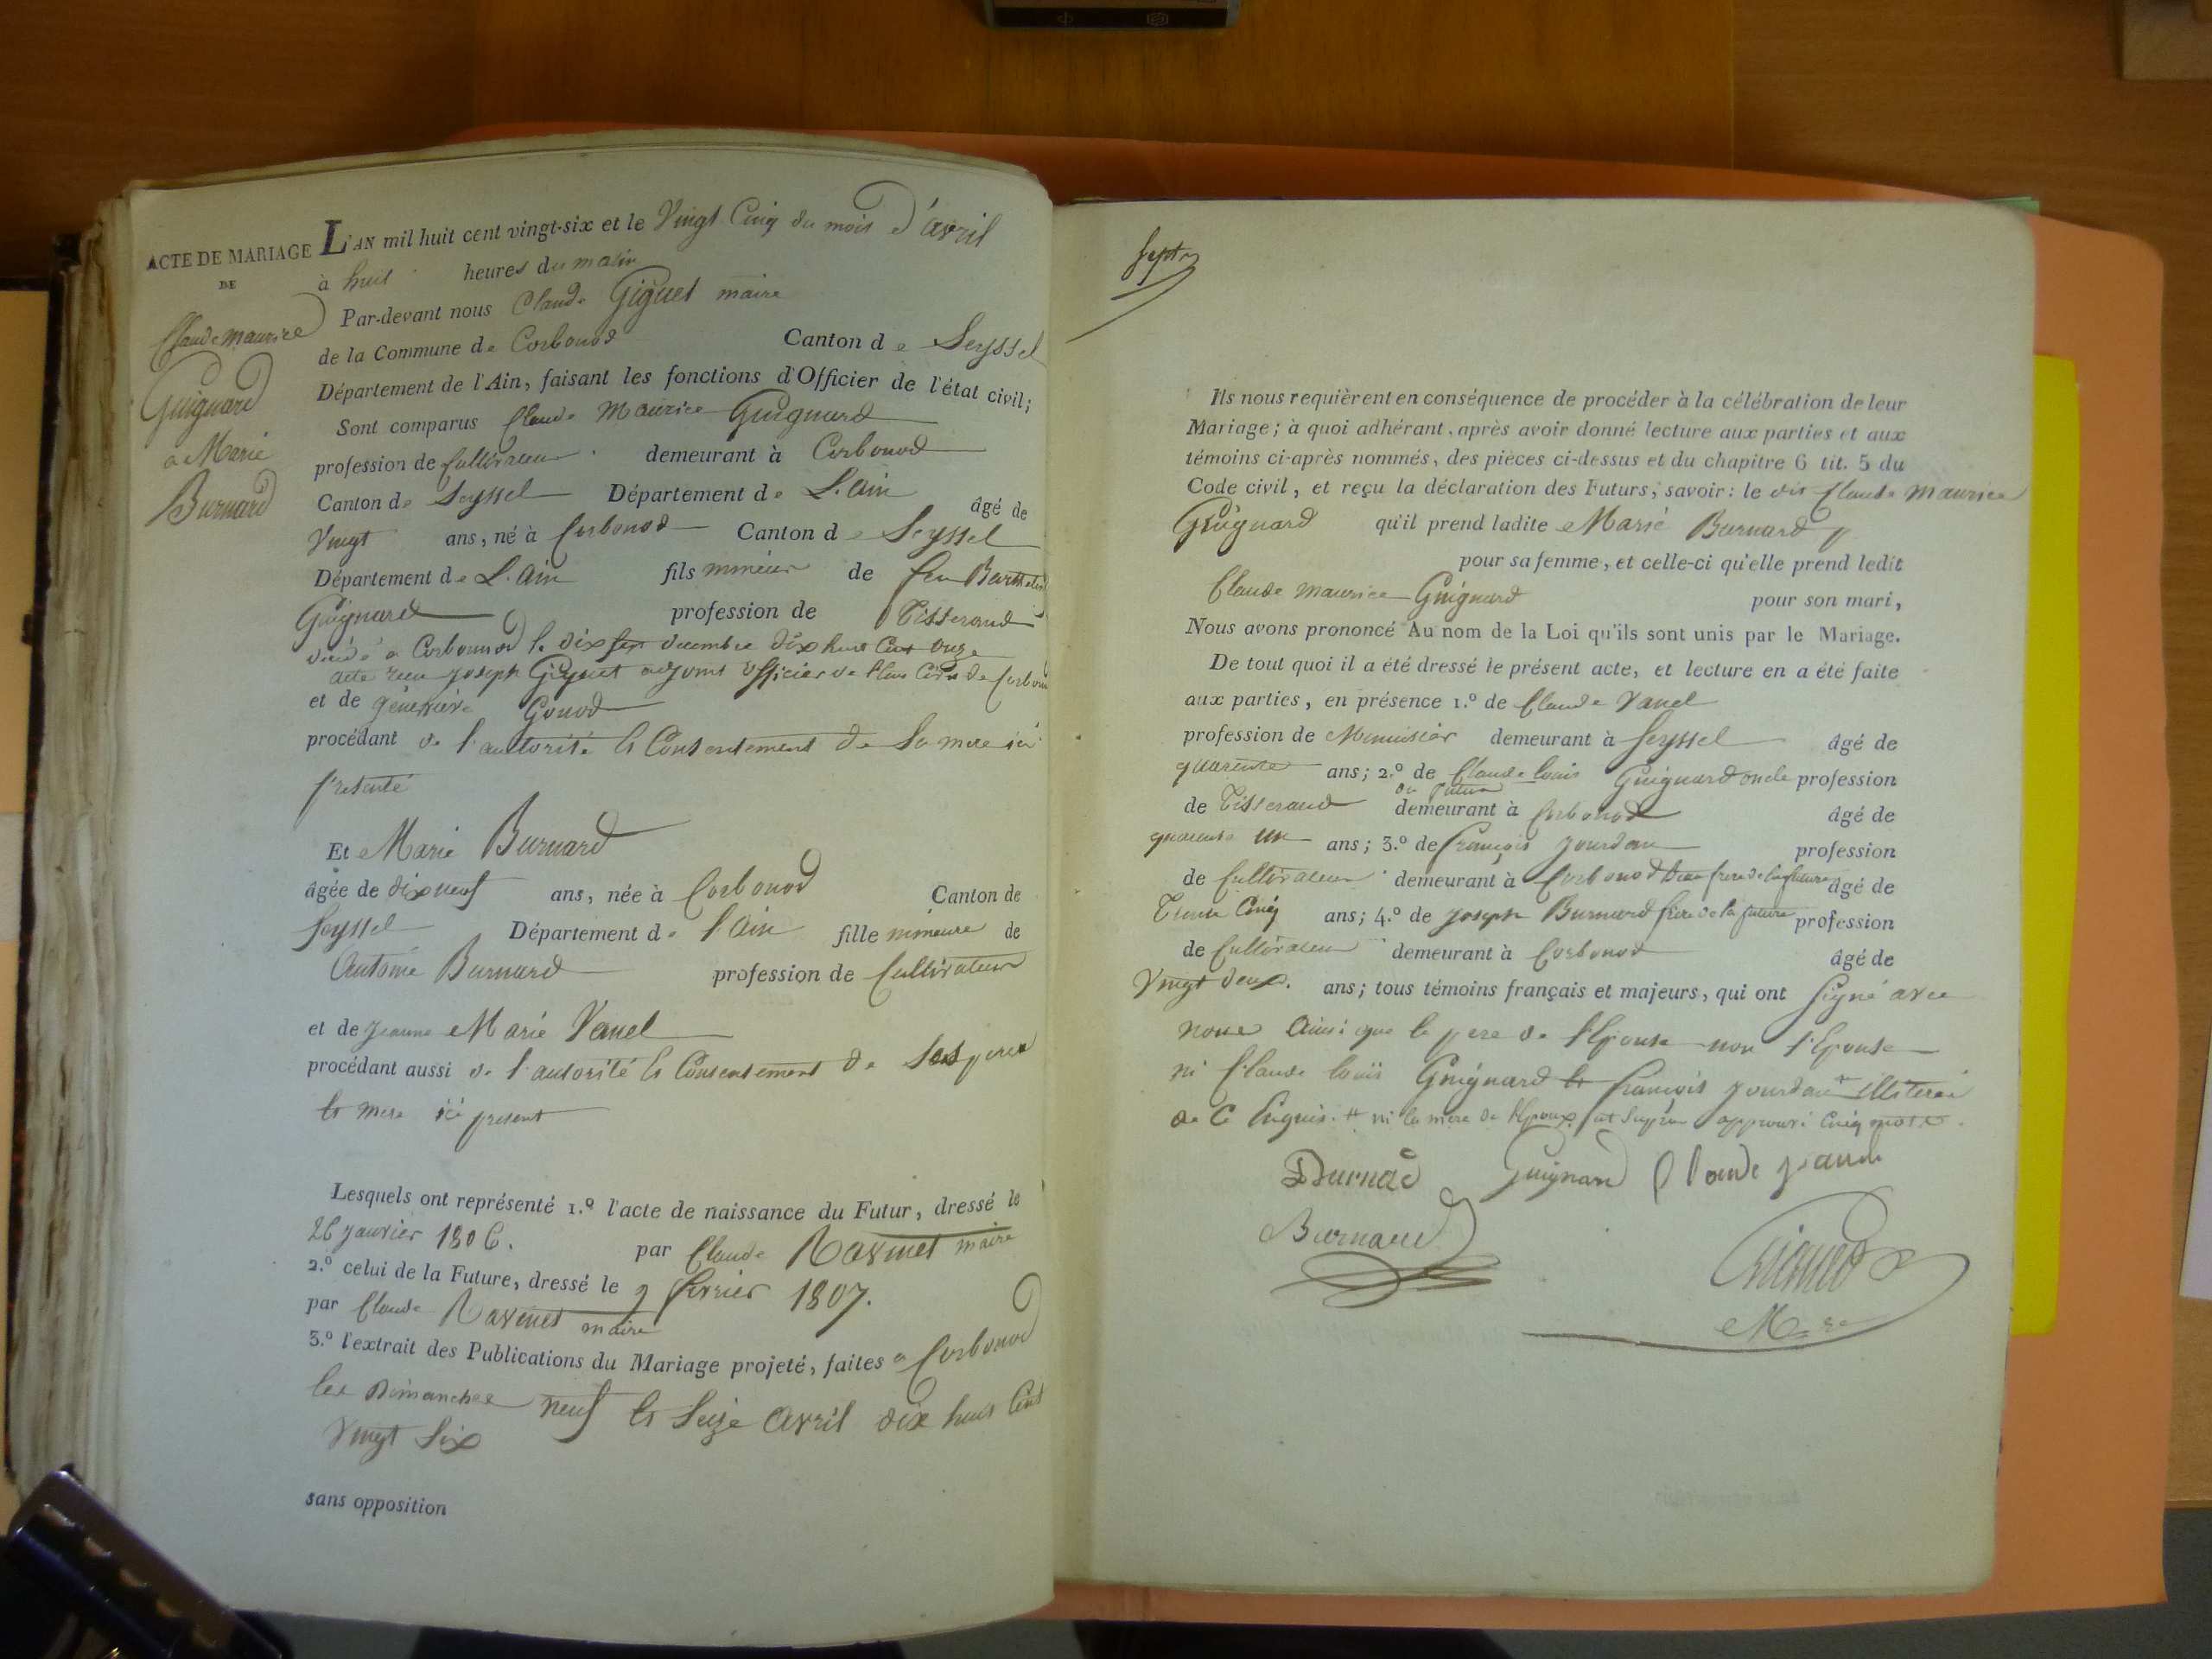 ACTE DE MARIAGE
DE
Claude Maurice
Guignard
a Marie
Burnard
L'AN mil huit cent vingt-six et le Vingt Cinq du mois d'avril
à huit heures du matin
Par-devant nous Claude Giguet maire
de la Commune de Corbonod Canton de Seyssel
Département de l'Ain, faisant les fonctions d'Officier de l'état civil;
Sont comparus Claude Maurice Guignard
profession de Cultivateur demeurant à Corbonod
Canton de Seyssel Département de L'ain âgé de
Vingt ans, né à Corbonod Canton de Seyssel
Département de L'ain fils mineur de feu Barthelemi
Guignard profession de Tisserand
décédé a Corbonod le dix sept decembre dix huit Cent onze
acte recu joseph Giguet adjoint officier de l'Etat Civil de Corbonod
et de généviève Gonod
procédant de l'autorité et Consentement de Sa mere ici
présente
Et Marie Burnard
âgée de dix neuf ans, née à Corbonod Canton de
Seyssel Département de l'Ain fille mineure de
Antoine Burnard profession de Cultivateur
et de jeanne Marie Vanel
procédant aussi de l'autorité et Consentement de Ses pere
et mere ici present
Lesquels ont représenté 1.º l'acte de naissance du Futur, dressé le
26 janvier 1806. par Claude Ravinet maire
2.º celui de la Future, dressé le 9 fevrier 1807.
par Claude Ravinet maire
3.º l'extrait des Publications du Mariage projeté, faites a Corbonod
les Dimanches neuf et Seize avril dix huit Cent
Vingt Six
sans opposition
Sept
Ils nous requièrent en conséquence de procéder à la célébration de leur
Mariage; à quoi adhérant, après avoir donné lecture aux parties et aux
témoins ci-après nommés, des pièces ci-dessus et du chapitre 6 tit. 5 du
Code civil, et reçu la déclaration des Futurs, savoir: le dit Claude Maurice
Guignard qu'il prend ladite Marie Burnard
pour sa femme, et celle-ci qu'elle prend ledit
Claude Maurice Guignard pour son mari,
Nous avons prononcé Au nom de la Loi qu'ils sont unis par le Mariage.
De tout quoi il a été dressé le présent acte, et lecture en a été faite
aux parties, en présence 1.º de Claude Vanel
profession de Menuisier demeurant à Seyssel âgé de
quarente ans; 2.º de Claude Louis Guignard oncle profession
du futur
de Tisserand demeurant à Corbonod âgé de
quarente un ans; 3.º de François Jourdan profession
de Cultivateur demeurant à Corbonod beau frere de la future âgé de
Trente Cinq ans; 4.º de joseph Burnard frere de la future profession
de Cultivateur demeurant à Corbonod âgé de
Vingt deux. ans; tous témoins français et majeurs, qui ont Signé avec
nous Ainsi que le pere de l'Epouse non l'Epouse
ni Claude Louis Guignard et François Jourdan illiterés
de Ce Enquis. # ni la mere de l'Epoux approuvé Cinq mots.
Burnad Guignard Claude
Burnard
Mre